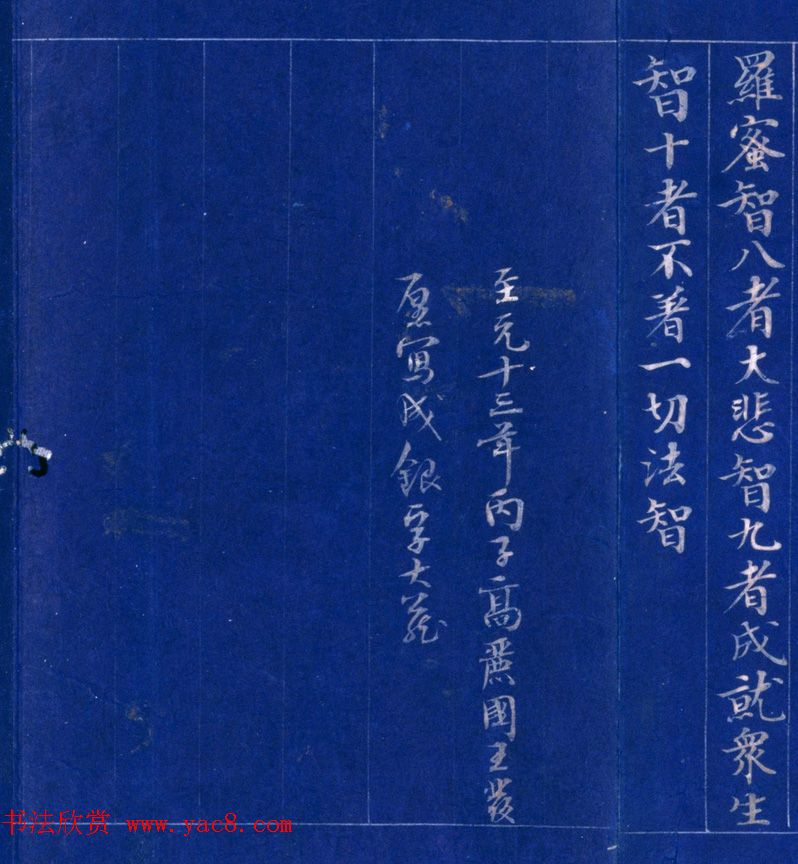 羅蜜智八者大悲智九者成就衆生
智十者不著一切法智
至元十三年丙子高麗國王發
願寫成銀字大藏
书法欣赏 www.yac8.com